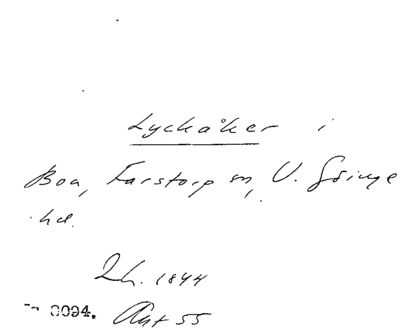 Lyckåker i
Boa, Farstorp sn, V. Göinge
hd.
Lh. 1844
0094. Akt 55